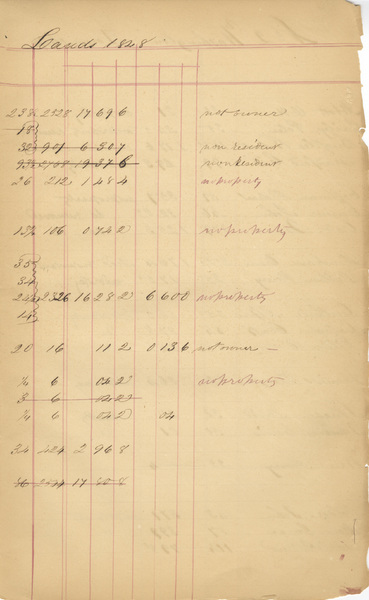 Lands 1828
23½ 2328 17 69 6 not owner
18½
32 901 6 50 7 non resident
93½ 2768 19 37 6 non resident
26 212 1 48 4 no property
13½ 106 0 74 2 no property
35
34
24½ 2326 16 28 2 6 60 0 no property
14
20 16 11 2 0 13 6 not owner —
¼ 6 04 2 no property
3 6 04 2
¼ 6 04 2 04
34 424 2 96 8